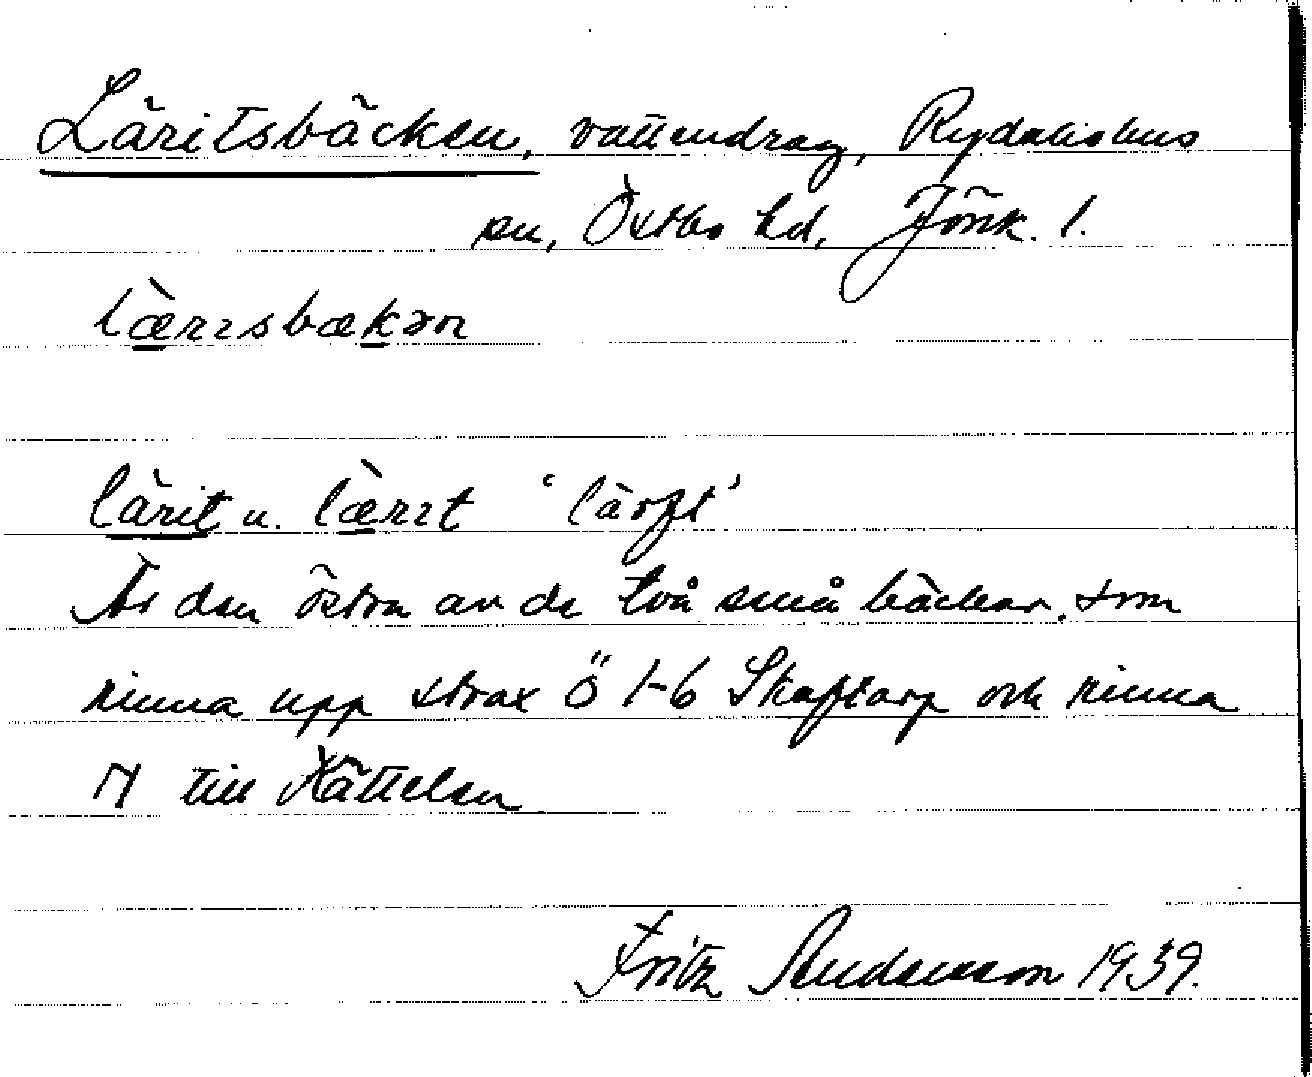 Läritsbäcken, vattendrag, Rydaholms
sn, Östbo hd, Jönk. l.
lærɩsbækən
lärit u. lærɩt 'lärft'
Är den östra av de två små bäckar, som
rinna upp strax Ö 1-6 Skaftarp och rinna
N till Hättelen
Fritz Andersson 1939.